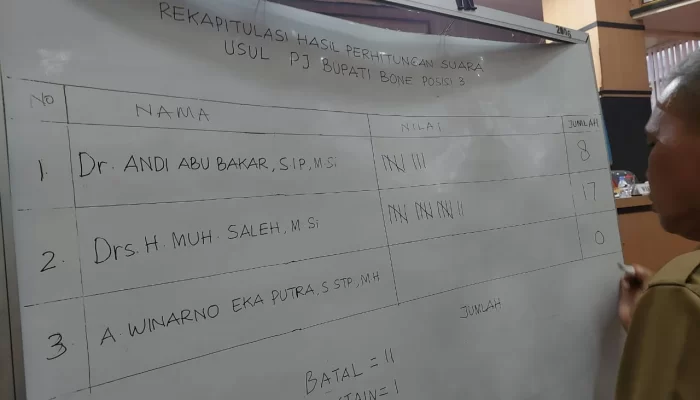 REKAPITULASI HASIL PERHITUNGAN SUARA
USUL PJ BUPATI BONE POSISI 3
NO NAMA NILAI JUMLAH
1. Dr. ANDI ABU BAKAR, S.IP, M.Si 8
2. Drs. H. MUH. SALEH, M.Si 17
3. A. WINARNO EKA PUTRA, S.STP, M.H 0
JUMLAH
BATAL = II